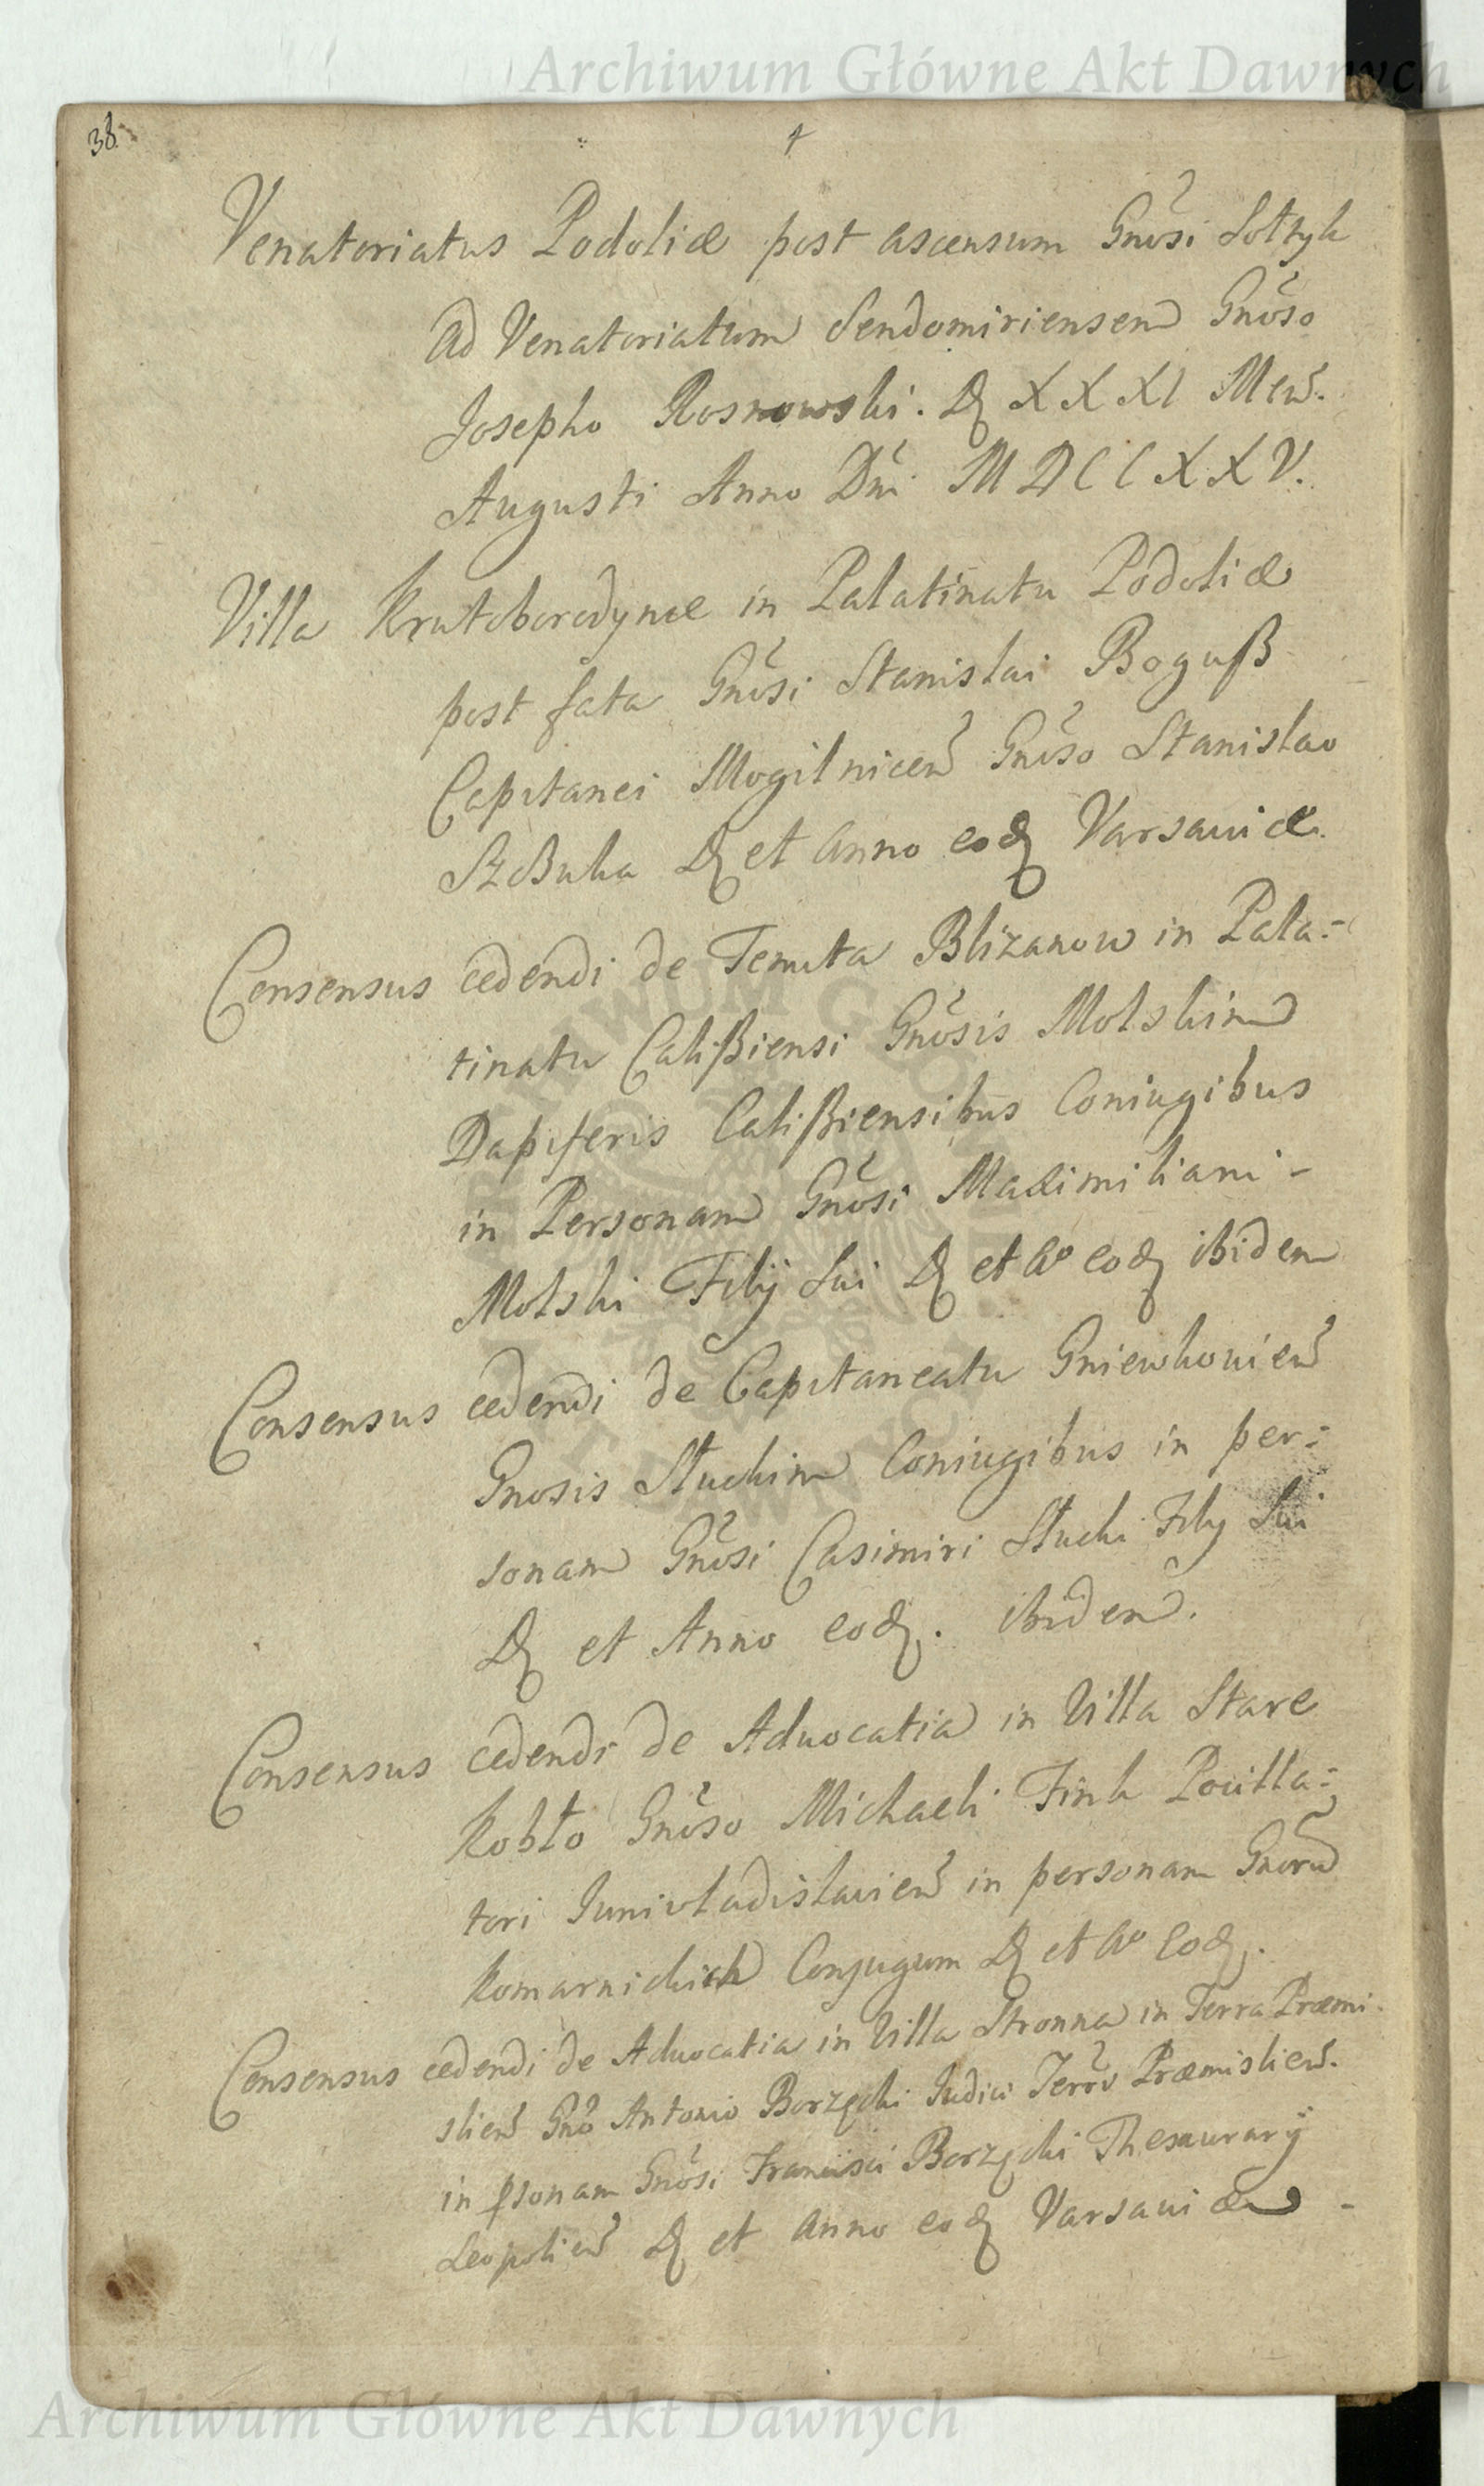 Archiwum Główne Akt Dawnych
38.
Venatoriatus Podoliæ post ascensum Gnõsi Sołtyk
ad Venatoriatum Sendomiriensem Gnõso
Josepho Rosnowski. D XXXI Men̄.
Augusti Anno Dni MDCCXXV.
Villa Krutoborodynce in Palatinatu Podoliæ
post fata Gnõsi Stanislai Boguß
Capitanei Mogilnicen̄ Gnõso Stanislao
Dq et Anno eodq Varsaviæ.
Consensus cedendi de Tenuta Blizanow in Pala:
tinatu Calißiensi Gnõsis Molskim
Dapiferis Calißiensibus Coniugibus
in Personam Gnõsi Maximiliani
Molski Filij Sui Dq et Aº eodq ibidem
Consensus cedendi de Capitaneatu Gniewkovien̄
Gnosis Słuckim Coniugibus in per:
sonam Gnõsi Casimiri Słucki Filij Sui
Dq et Anno eodq. ibidem.
Consensus cedendi de Advocatia in Villa Stare
Kobło Gnõso Michaeli Fink Pocilla:
tori Junivladislavien̄ in personam Gnorũ
Komarnickich Conjugum Dq et Aº eodq.
Consensus cedendi de Advocatia in Villa Stronna in Terra Præmi
slien̄ Gnõ Antonio Borzęcki Judici Terrõ Præmislien̄.
in psonam Gnõsi Francisci Borzęcki Thesaurarij
Leopolien̄ Dq et Anno eodq Varsaviæ
Archiwum Główne Akt Dawnych